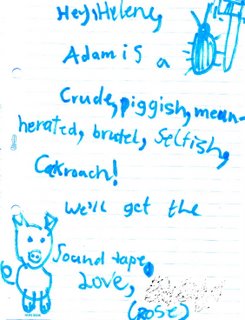 Hey, Helene,
Adam is a
Crude, piggish, mean-
herated, brutel, Selfish,
Cokroach!
We'll get the
Sound tape.
Love,
(ROSE)